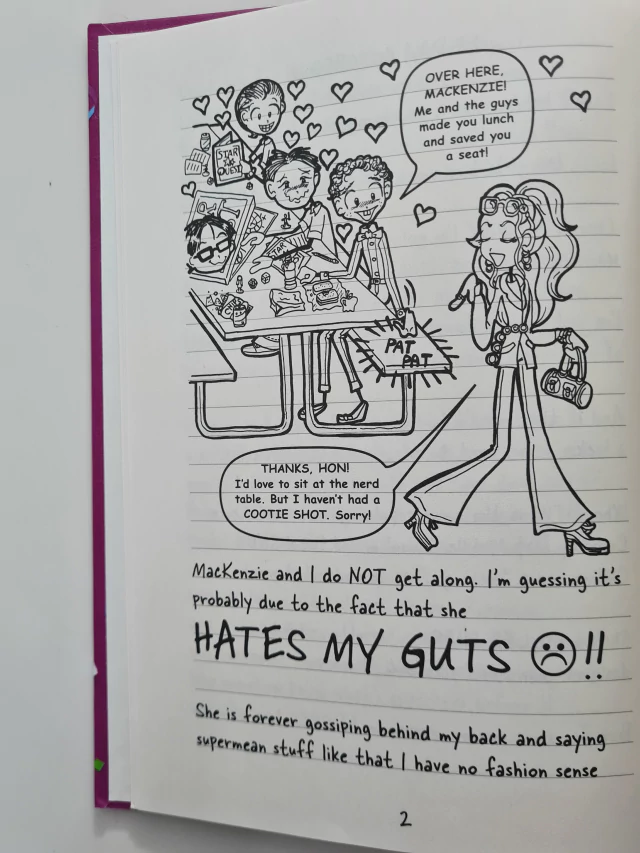 OVER HERE,
MACKENZIE!
Me and the guys
made you lunch
and saved you
a seat!
STAR
QUEST
STAR
PAT
PAT
THANKS, HON!
I'd love to sit at the nerd
table. But I haven't had a
COOTIE SHOT. Sorry!
MacKenzie and I do NOT get along. I'm guessing it's
probably due to the fact that she
HATES MY GUTS ☹!!
She is forever gossiping behind my back and saying
supermean stuff like that I have no fashion sense
2